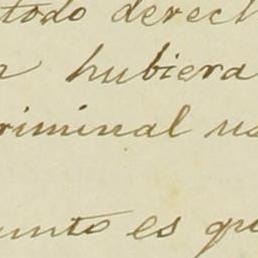 todo derech
hubiera
riminal us
unto es qu